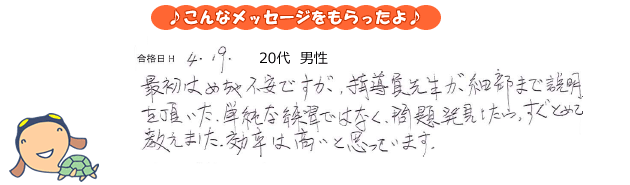 ♪こんなメッセージをもらったよ♪
合格日H 4.19. 20代 男性
最初はめちゃ不安ですが、指導員先生が細部まで説明
を頂いた。単純な練習ではなく、問題発見したら、すぐとめて
教えました。効率は高いと思っています。